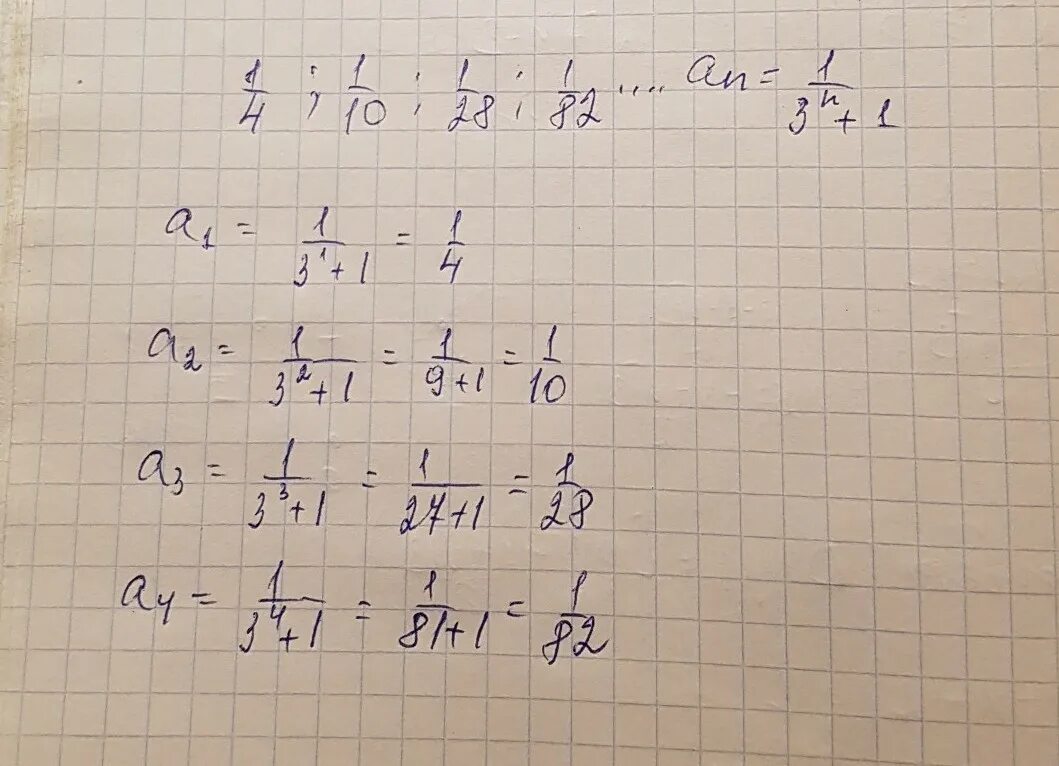 1/4 ; 1/10 ; 1/28 ; 1/82 .... an = 1/(3^n + 1)
a₁ = 1/(3^1 + 1) = 1/4
a₂ = 1/(3^2 + 1) = 1/(9 + 1) = 1/10
a₃ = 1/(3^3 + 1) = 1/(27 + 1) = 1/28
a₄ = 1/(3^4 + 1) = 1/(81 + 1) = 1/82